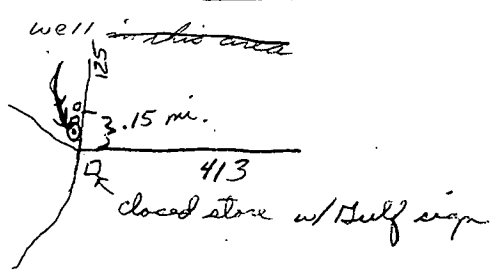 well in this area
125
.15 mi.
413
closed store w/ Gulf sign